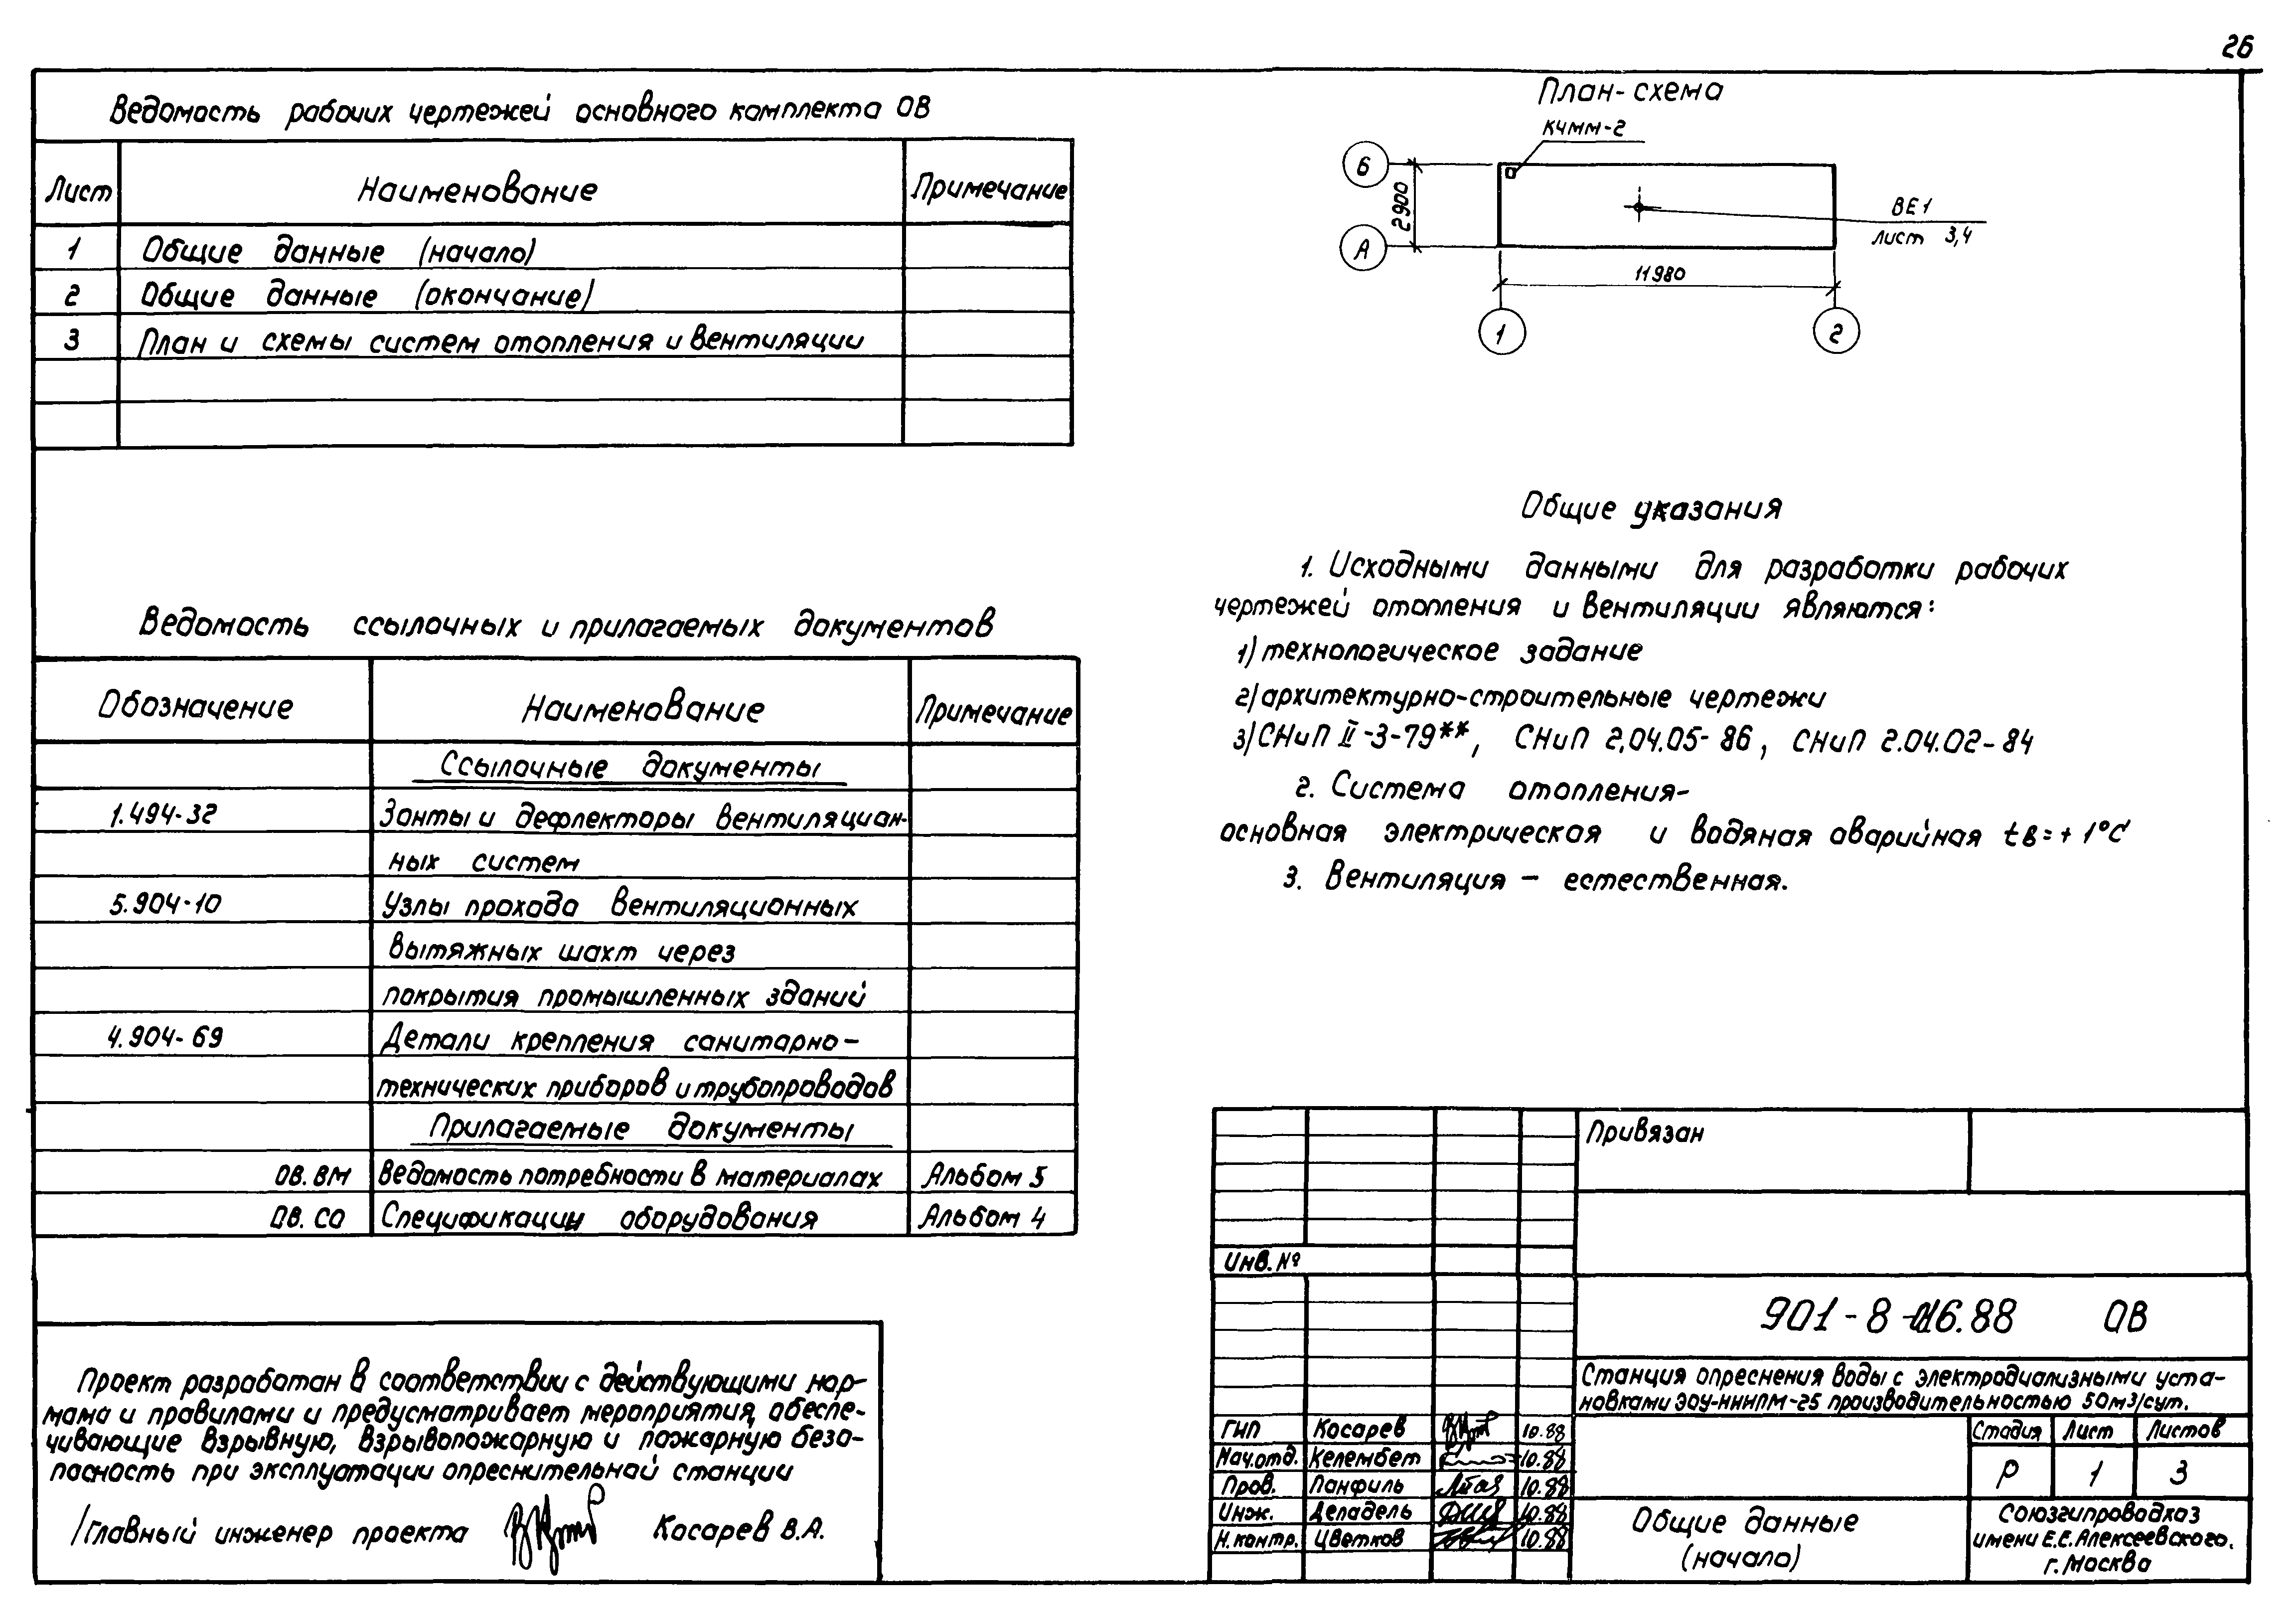 26
Ведомость рабочих чертежей основного комплекта ОВ
Лист Наименование Примечание
1 Общие данные (начало)
2 Общие данные (окончание)
3 План и схемы систем отопления и вентиляции
Ведомость ссылочных и прилагаемых документов
Обозначение Наименование Примечание
Ссылочные документы
1.494-32 Зонты и дефлекторы вентиляцион-
ных систем
5.904-10 Узлы прохода вентиляционных
вытяжных шахт через
покрытия промышленных зданий
4.904-69 Детали крепления санитарно-
технических приборов и трубопроводов
Прилагаемые документы
ОВ. ВМ Ведомость потребности в материалах Альбом 5
ОВ. СО Спецификации оборудования Альбом 4
Проект разработан в соответствии с действующими нор-
мами и правилами и предусматривает мероприятия, обеспе-
чивающие взрывную, взрывопожарную и пожарную безо-
пасность при эксплуатации опреснительной станции
Главный инженер проекта Косарев В.А.
План-схема
КЧММ-2
Б
2900
А
ВЕ1
лист 3,4
11980
1 2
Общие указания
1. Исходными данными для разработки рабочих
чертежей отопления и вентиляции являются:
1) технологическое задание
2) архитектурно-строительные чертежи
3) СНиП II-3-79**, СНиП 2.04.05-86, СНиП 2.04.02-84
2. Система отопления-
основная электрическая и водяная аварийная tв=+1°С
3. Вентиляция - естественная.
Привязан
Инв. №
901-8-16.88 ОВ
Станция опреснения воды с электродиализными уста-
новками ЭОУ-НИИПМ-25 производительностью 50м³/сут.
ГИП Косарев 10.88
Нач.отд. Келембет 10.88
Пров. Панфиль 10.88
Инж. Деладель 10.88
Н.контр. Цветков 10.88
Стадия Лист Листов
Р 1 3
Общие данные
(начало)
Союзгипроводхоз
имени Е.Е.Алексеевского.
г.Москва